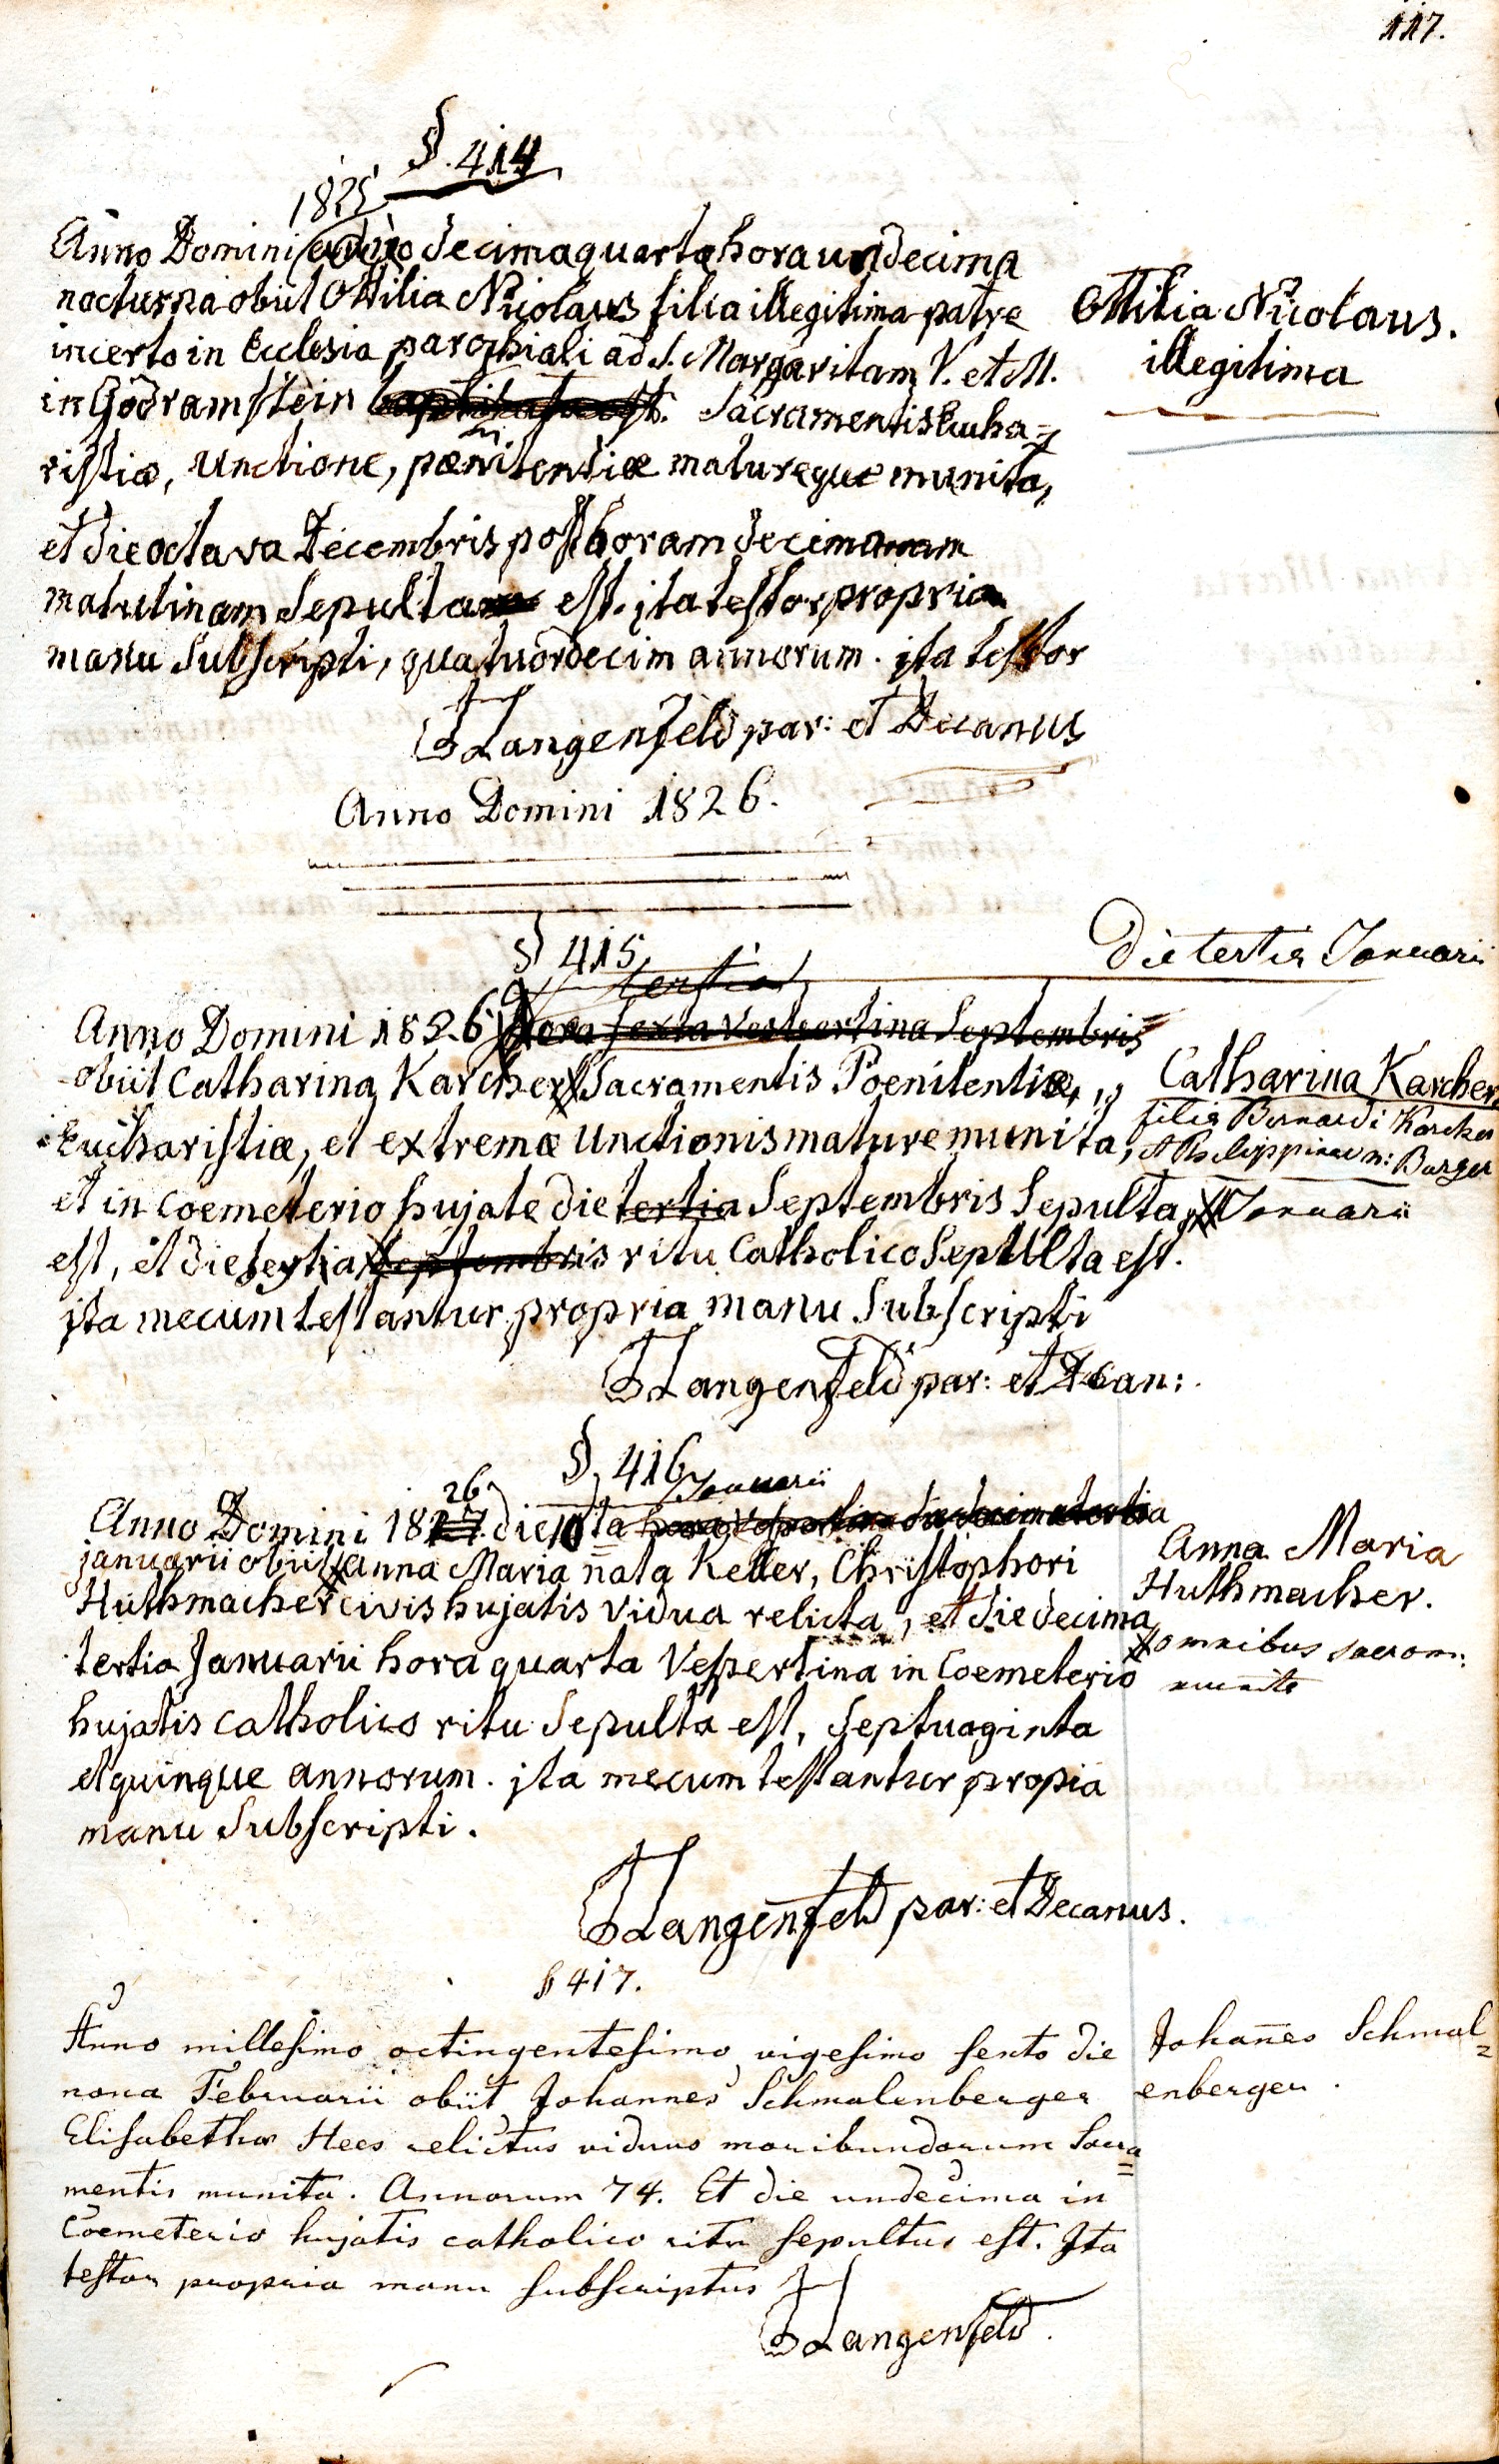 117.
§. 414
1825
Anno Domini decimaquarta hora undecima
nocturna obiit Ottilia Nicolaus filia illegitima patre
incerto in Ecclesia parochiali ad S. Margaritam V. et M.
in Godramstein baptizata est. Sacramentis Eucha=
ristiæ, Unctione, pænitentiæ matureque munita,
et die octava Decembris post horam decimam
matutinam Sepulta est. ita testor propria
manu Subscripti, quatuordecim annorum. ita testor
Langenfeld par: et Decanus
Ottilia Nicolaus.
illegitima
Anno Domini 1826.
§ 415
tertia
Die tertia Januarii
Anno Domini 1826 hora sexta vespertina Septembris
obiit Catharina Karcher Sacramentis Poenitentiæ,
Eucharistiæ, et extremæ Unctionis mature munita,
et in coemeterio hujate die tertia Septembris Sepulta
est, et die tertia Septembris ritu Catholico Sepulta est.
ita mecum testantur propria manu Subscripti
Langenfeld par: et Decan:
Catharina Karcher
filia Bernardi Karcher
et Philippinae n: Burger
Januarii
§. 416
26 Januarii
Anno Domini 1827 die 10 ta hora Vespertina die decima tertia
januarii obiit Anna Maria nata Keller, Christophori
Huthmacher civis hujatis Vidua relicta, et die decima
tertia Januarii hora quarta Vespertina in Coemeterio
hujatis catholico ritu Sepulta est, Septuaginta
et quinque annorum. ita mecum testantur propia
manu Subscripti.
Langenfeld par: et Decanus.
Anna Maria
Huthmacher.
omnibus sacram:
munita
§ 417.
Anno millesimo octingentesimo vigesimo sexto die
nona Februarii obiit Johannes Schmalenberger
Elisabethae Hees relictus viduus moribundorum Sacra=
mentis munita. Annorum 74. Et die undecima in
Coemeterio hujatis catholico ritu sepultus est. Ita
testor propria manu subscriptus
Langenfeld.
Johannes Schmal=
enberger.